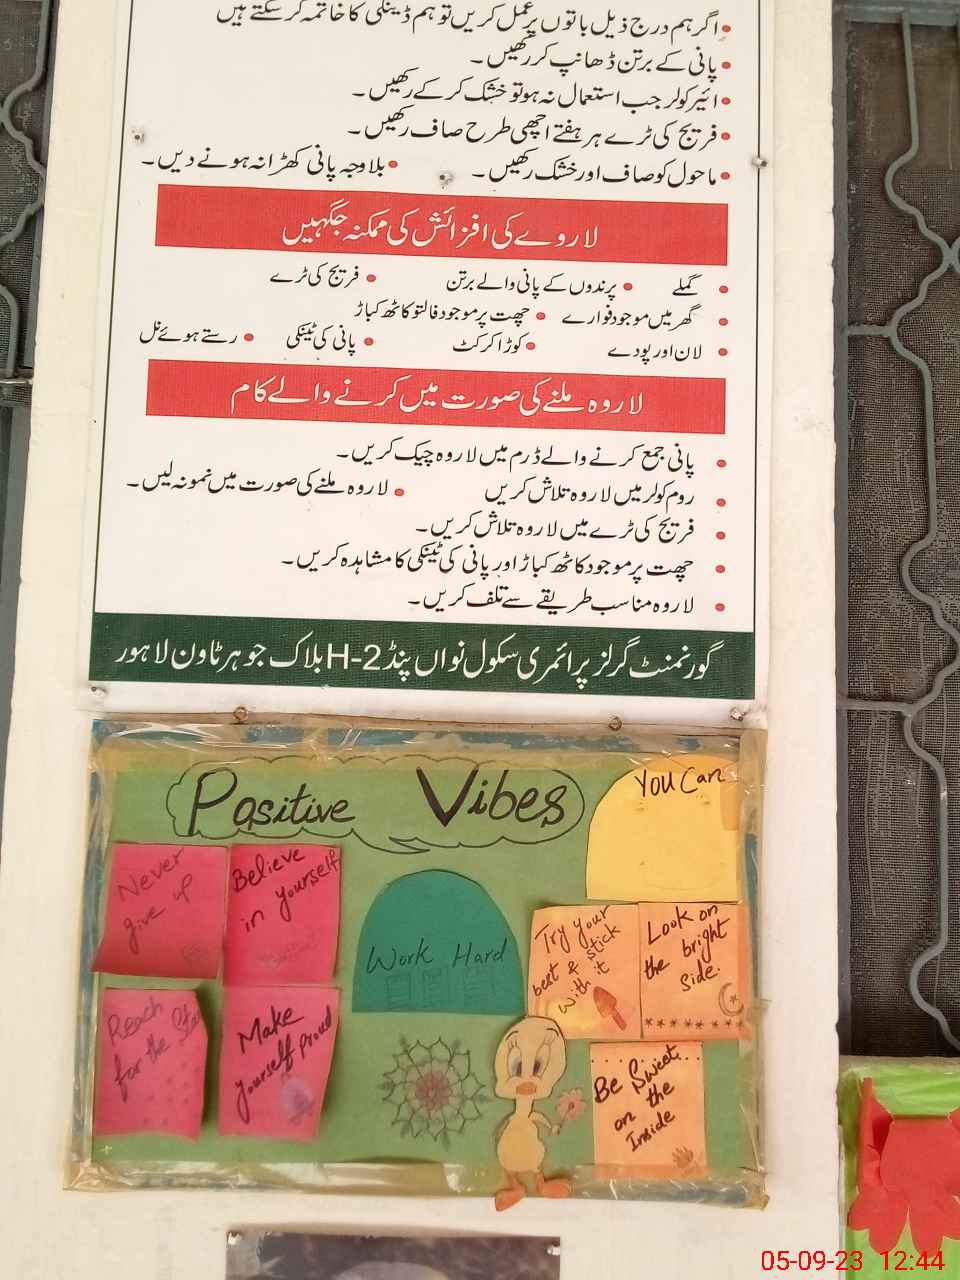 اگر ہم درج ذیل باتوں پر عمل کریں تو ہم ڈینگی کا خاتمہ کر سکتے ہیں
پانی کے برتن ڈھانپ کر رکھیں۔
ائیر کولر جب استعمال نہ ہو تو خشک کر کے رکھیں۔
فریج کی ٹرے ہر ہفتے اچھی طرح صاف رکھیں۔
ماحول کو صاف اور خشک رکھیں۔ • بلاوجہ پانی کھڑا نہ ہونے دیں۔
لاروے کی افزائش کی ممکنہ جگہیں
گملے • پرندوں کے پانی والے برتن • فریج کی ٹرے
گھر میں موجود فوارے • چھت پر موجود فالتو کاٹھ کباڑ
لان اور پودے • کوڑا کرکٹ • پانی کی ٹینکی • رستے ہوئے نل
لاروہ ملنے کی صورت میں کرنے والے کام
پانی جمع کرنے والے ڈرم میں لاروہ چیک کریں۔
روم کولر میں لاروہ تلاش کریں • لاروہ ملنے کی صورت میں نمونہ لیں۔
فریج کی ٹرے میں لاروہ تلاش کریں۔
چھت پر موجود کاٹھ کباڑ اور پانی کی ٹینکی کا مشاہدہ کریں۔
لاروہ مناسب طریقے سے تلف کریں۔
گورنمنٹ گرلز پرائمری سکول نواں پنڈ H-2 بلاک جوہر ٹاون لاہور
Positive Vibes
You Can
Never
give up
Believe
in yourself
Work Hard
Try your
best & stick
with it
Look on
the bright
side.
Reach
for the Star
Make
yourself Proud
Be Sweet
on the
Inside
05-09-23 12:44